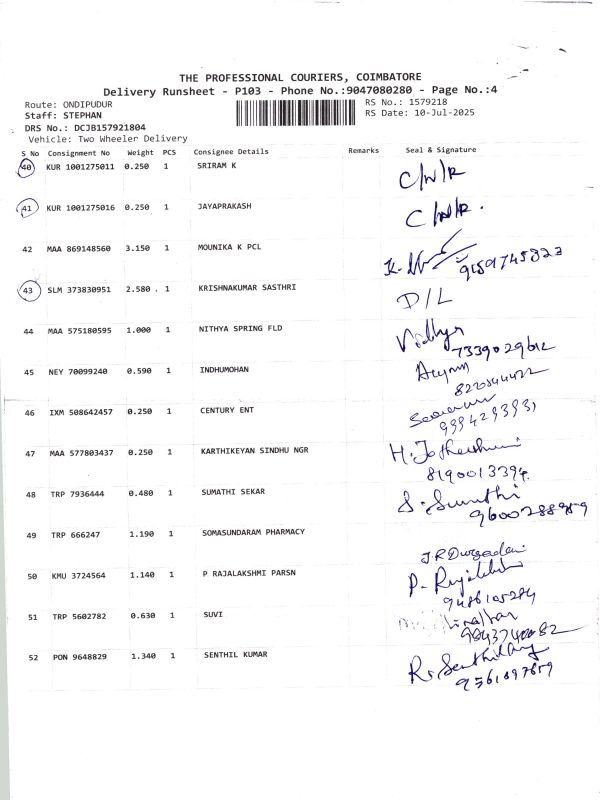 THE PROFESSIONAL COURIERS, COIMBATORE
Delivery Runsheet - P103 - Phone No.:9047080280 - Page No.:4
Route: ONDIPUDUR RS No.: 1579218
Staff: STEPHAN RS Date: 10-Jul-2025
DRS No.: DCJB157921804
Vehicle: Two Wheeler Delivery
S No Consignment No Weight PCS Consignee Details Remarks Seal & Signature
40 KUR 1001275011 0.250 1 SRIRAM K C/N/R
41 KUR 1001275016 0.250 1 JAYAPRAKASH C/N/R.
42 MAA 869148560 3.150 1 MOUNIKA K PCL
43 SLM 373830951 2.580 . 1 KRISHNAKUMAR SASTHRI D/L
44 MAA 575180595 1.000 1 NITHYA SPRING FLD Vidhya
7339029612
45 NEY 70099240 0.590 1 INDHUMOHAN
46 IXM 508642457 0.250 1 CENTURY ENT
47 MAA 577803437 0.250 1 KARTHIKEYAN SINDHU NGR
8190013394
48 TRP 7936444 0.480 1 SUMATHI SEKAR S. Sumathi
49 TRP 666247 1.190 1 SOMASUNDARAM PHARMACY
50 KMU 3724564 1.140 1 P RAJALAKSHMI PARSN
9486105284
51 TRP 5602782 0.630 1 SUVI
52 PON 9648829 1.340 1 SENTHIL KUMAR